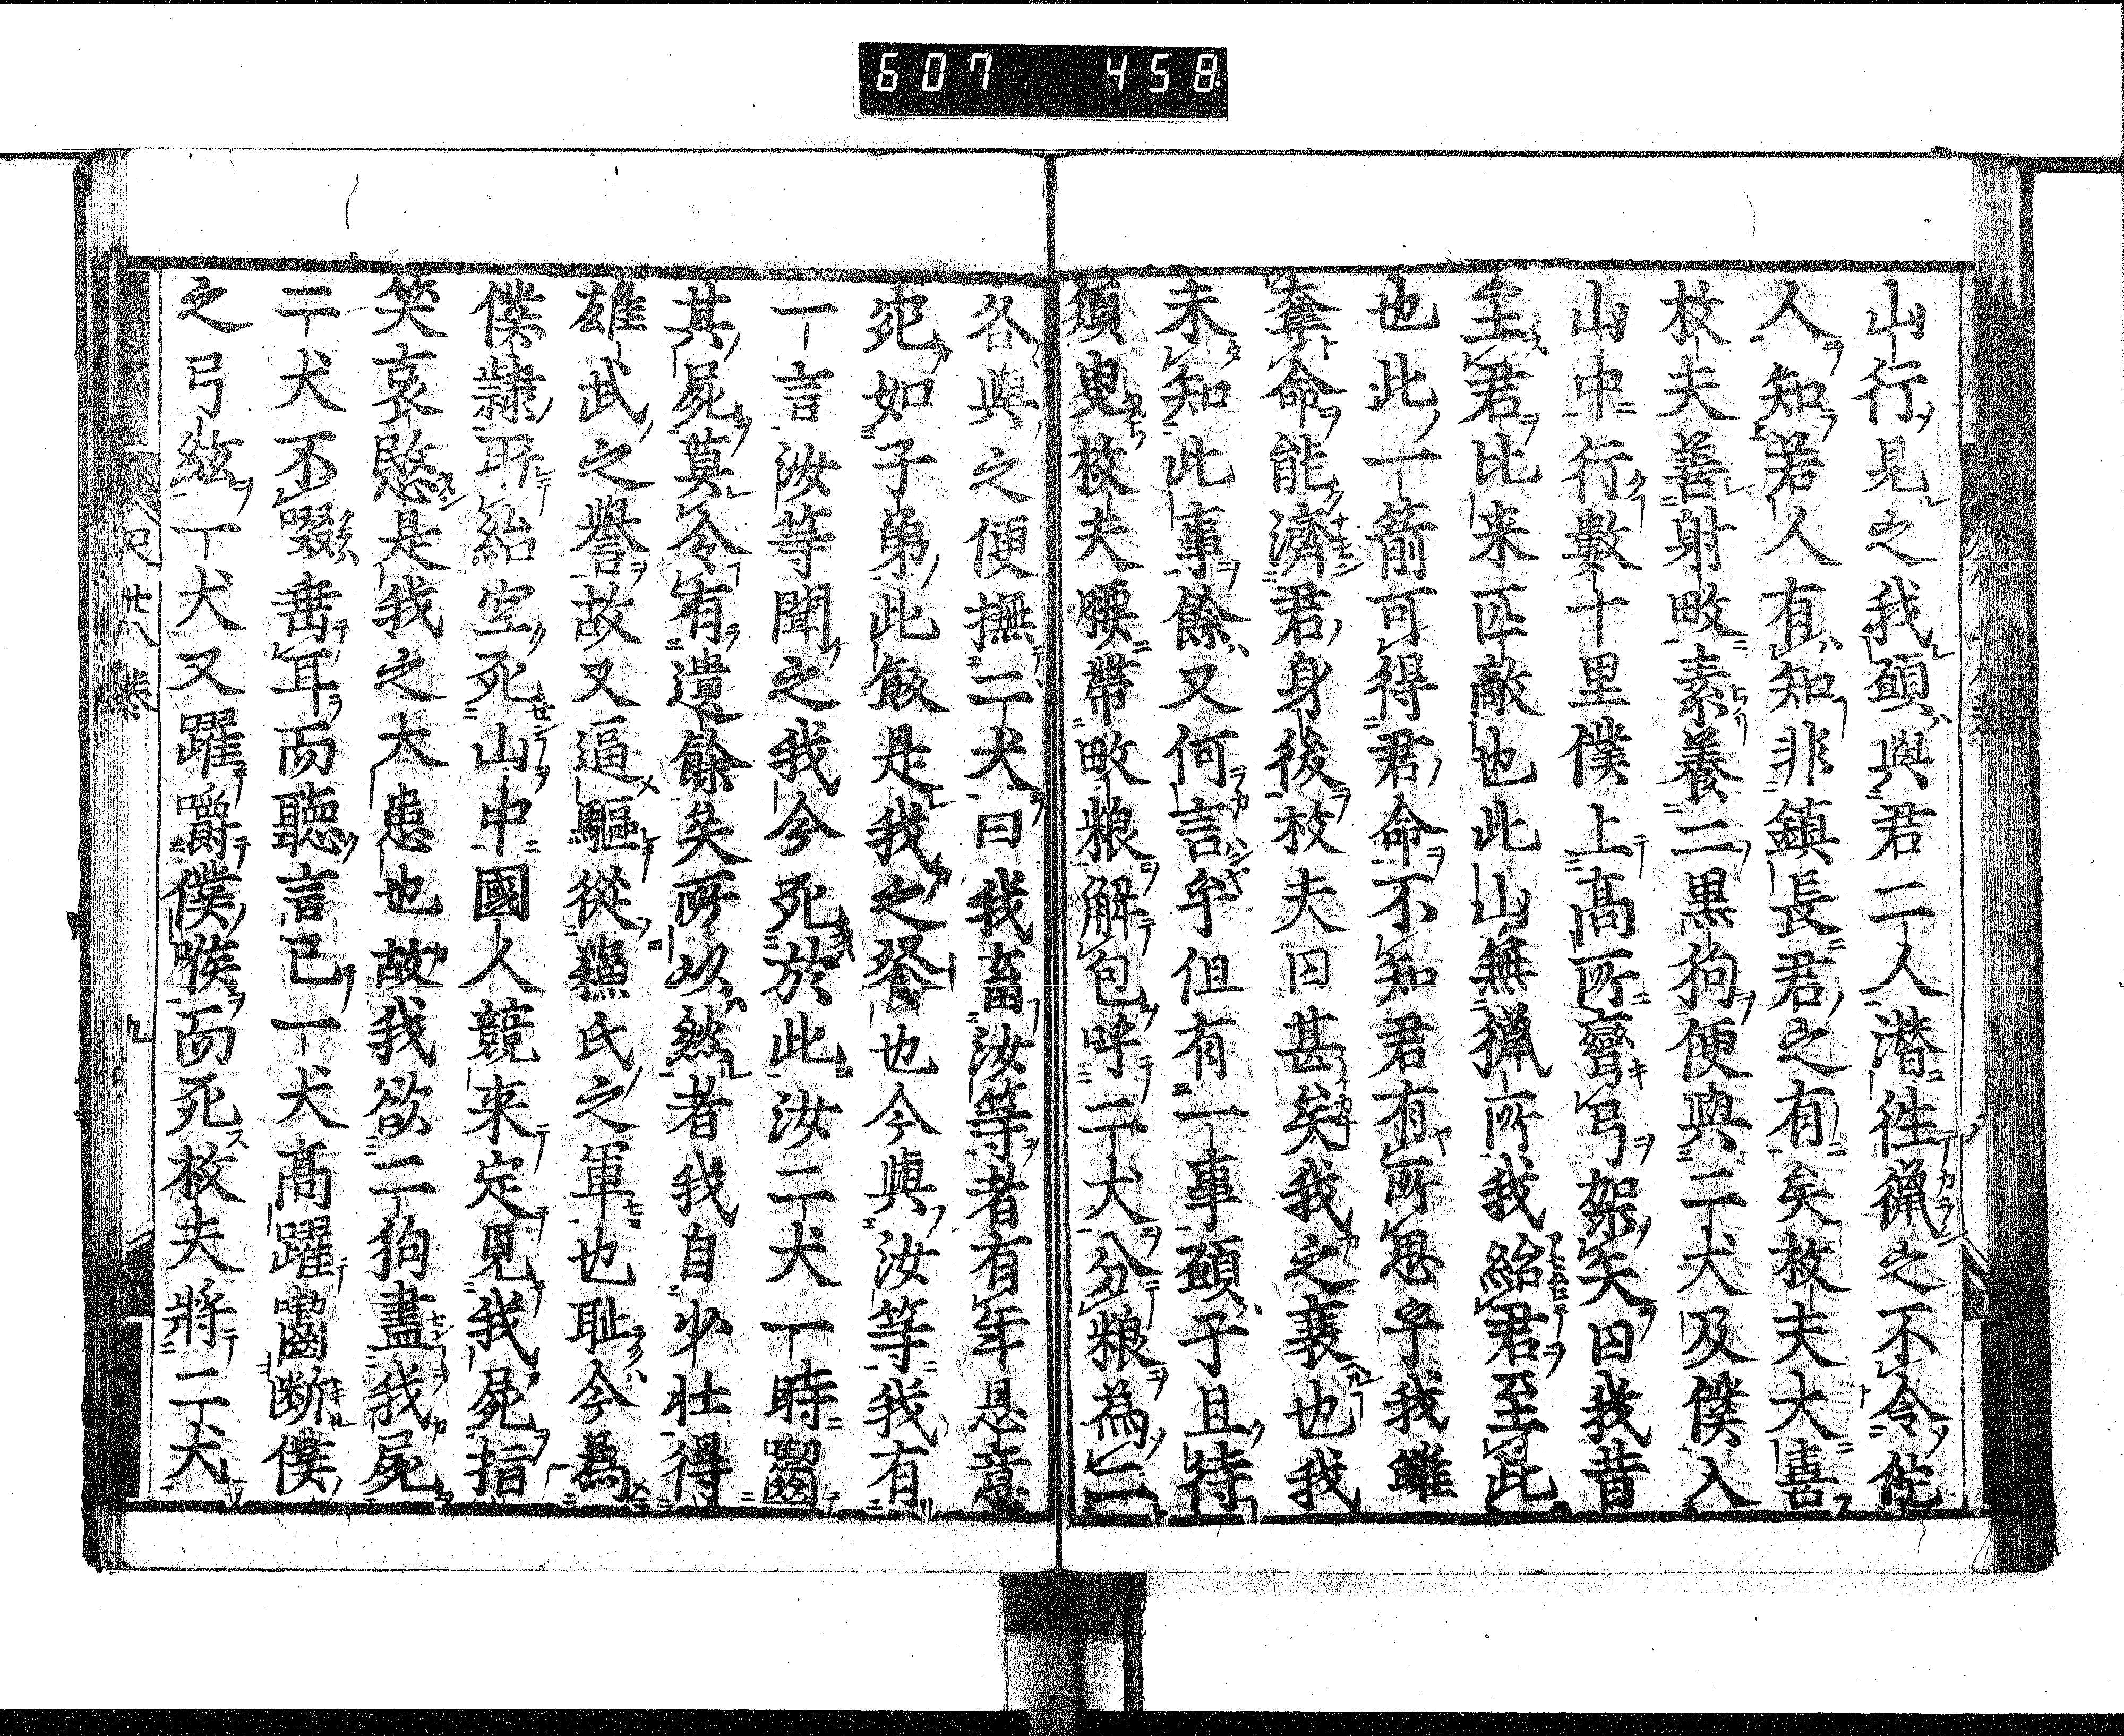 607 458
山行見之我願與君二人潜往猟之不令佗
人知若人有知非鎮長君之有矣枚夫大喜
枚夫善射畋素養二黒狗便與二犬及僕入
山中行數十里僕上髙所彎弓架矢曰我昔
主君比来匹敵也此山無猟所我紿君至此
也此一箭可得君命不知君有所思乎我雖
奪命能濟君身後枚夫曰甚矣我之衰也我
未知此事餘又何言乎但有一事願子且待
須臾枚夫腰帶畋粮解包呼二犬分粮為二
各與之便撫二犬曰我畜汝等者有年恩意
宛如子弟此飯是我之飱也今與汝等我有
一言汝等聞之我今死於此汝二犬一時齧
其屍莫令有遺餘矣所以然者我自少壮得
雄武之譽故又逼驅從蘓氏之軍也耻今為
僕隷所紿空死山中國人競来定見我屍指
笑哀愍是我之大患也故我欲二狗盡我屍
二犬不啜垂耳而聴言已一犬髙躍齧断僕
之弓絃一犬又躍嚼僕喉而死枚夫將二犬
史廿八巻
九